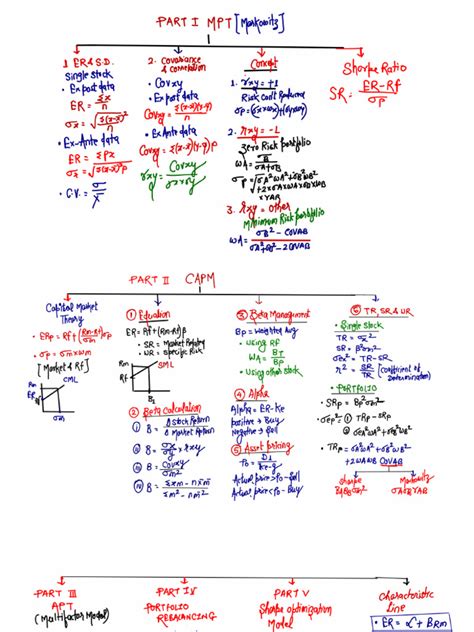 PART I MPT [Markowitz]
1. ER & S.D.
Single stock
• Ex post data
ER = Σx/n
σx = √Σ(x-x̄)²/n
• Ex-Ante data
ER = Σpx
σx = √Σ(x-x̄)²p
• C.V. = σ/x̄
2. Covariance & Correlation
• Covxy
• Ex post data
Covxy = Σ(x-x̄)(y-ȳ)/n
• Ex Ante data
Covxy = Σ(x-x̄)(y-ȳ)p
rxy = Covxy/σxσy
Concept
1. rxy = +1
Risk can't Reduced
2. rxy = -1
Zero Risk portfolio
WA = σB/σA+σB
σp = √σA²WA²+σB²WB²
+2×σA×WA×σB×WB
×rAB
3. rxy = other
Minimum Risk portfolio
WA = σB² - COVAB/σA²+σB²-2COVAB
Sharpe Ratio
SR = ER-Rf/σp
PART II CAPM
Capital Market
Theory
• ERp = Rf+(Rm-Rf/σm)σp
• σp = σm×Wm
[Market & Rf]
Rm
ER
Rf
CML
σm
① Equation
ER = Rf+(Rm-Rf)β
• SR = Market Related
• UR = Specific Risk
Rm
Rf
SML
② Beta Calculation
① B = Δ Stock Return/Δ Market Return
② B = σs/σm × r
③ B = Covxy/σm²
④ B = Σxm - nx̄m̄/Σm² - nm̄²
③ Beta Management
Bp = Weighted Avg
• Using Rf
WA = BT/Bp
• Using other stock
④ Alpha
Alpha = ER-Ke
positive → Buy
Negative → Sell
⑤ Asset pricing
P0 = D1/Ke-g
Actual price > P0 - Sell
Actual price < P0 - Buy
⑥ TR, SR & UR
• Single Stock
TR = σs²
SR = β²σm²
σe² = TR-SR
r² = SR/TR (Coefficient of Determination)
• PORTFOLIO
• SRp = Bp²σm²
① TRp - SRp
② σe²WA²+σe²WB²
• TRp = σA²WA²+σB²WB²
+2WAWB COVAB
Sharpe
BABBσm²
Markowitz
σAσBrAB
PART III
APT
(Multifactor Model)
PART IV
PORTFOLIO
REBALANCING
PART V
Sharpe optimization
Model
Characteristic
Line
• ER = α + BRm